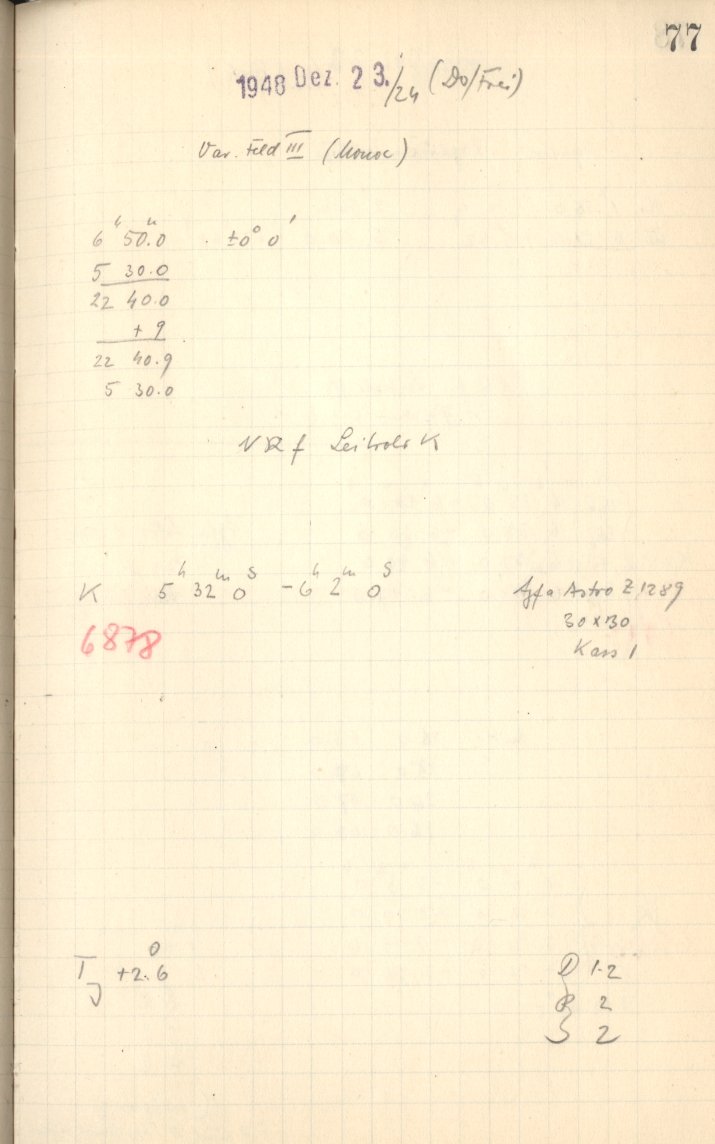 77
1948 Dez. 23./24 (Do/Frei)
Var. Feld III (Monoc)
6h 50m.0 ±0° 0'
5 30.0
22 40.0
+ 9
22 40.9
5 30.0
f K
K 5h 32m 0s -6h 2m 0s Agfa Astro Z 1289
6878 30x30
Kass 1
TJ +2°.6 D 1-2
R 2
S 2